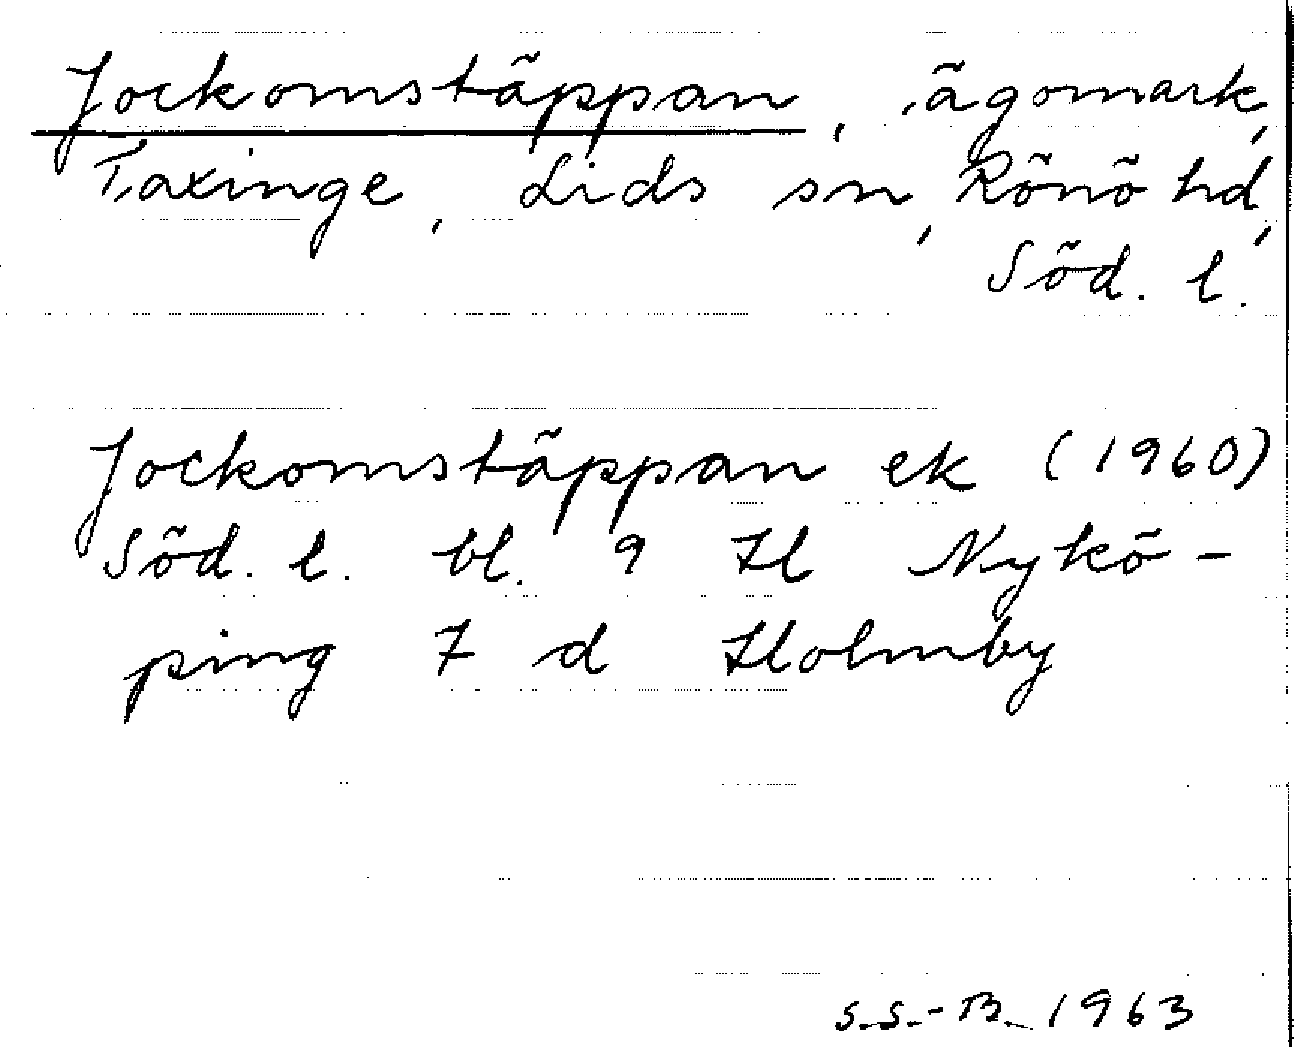 Jockomstäppan, ägomark,
Taxinge, Lids sn, Rönö hd,
Söd. l.
Jockomstäppan ek (1960)
Söd. l. bl. 9 H Nykö-
ping 7 d Holmby
S.S.-B. 1963